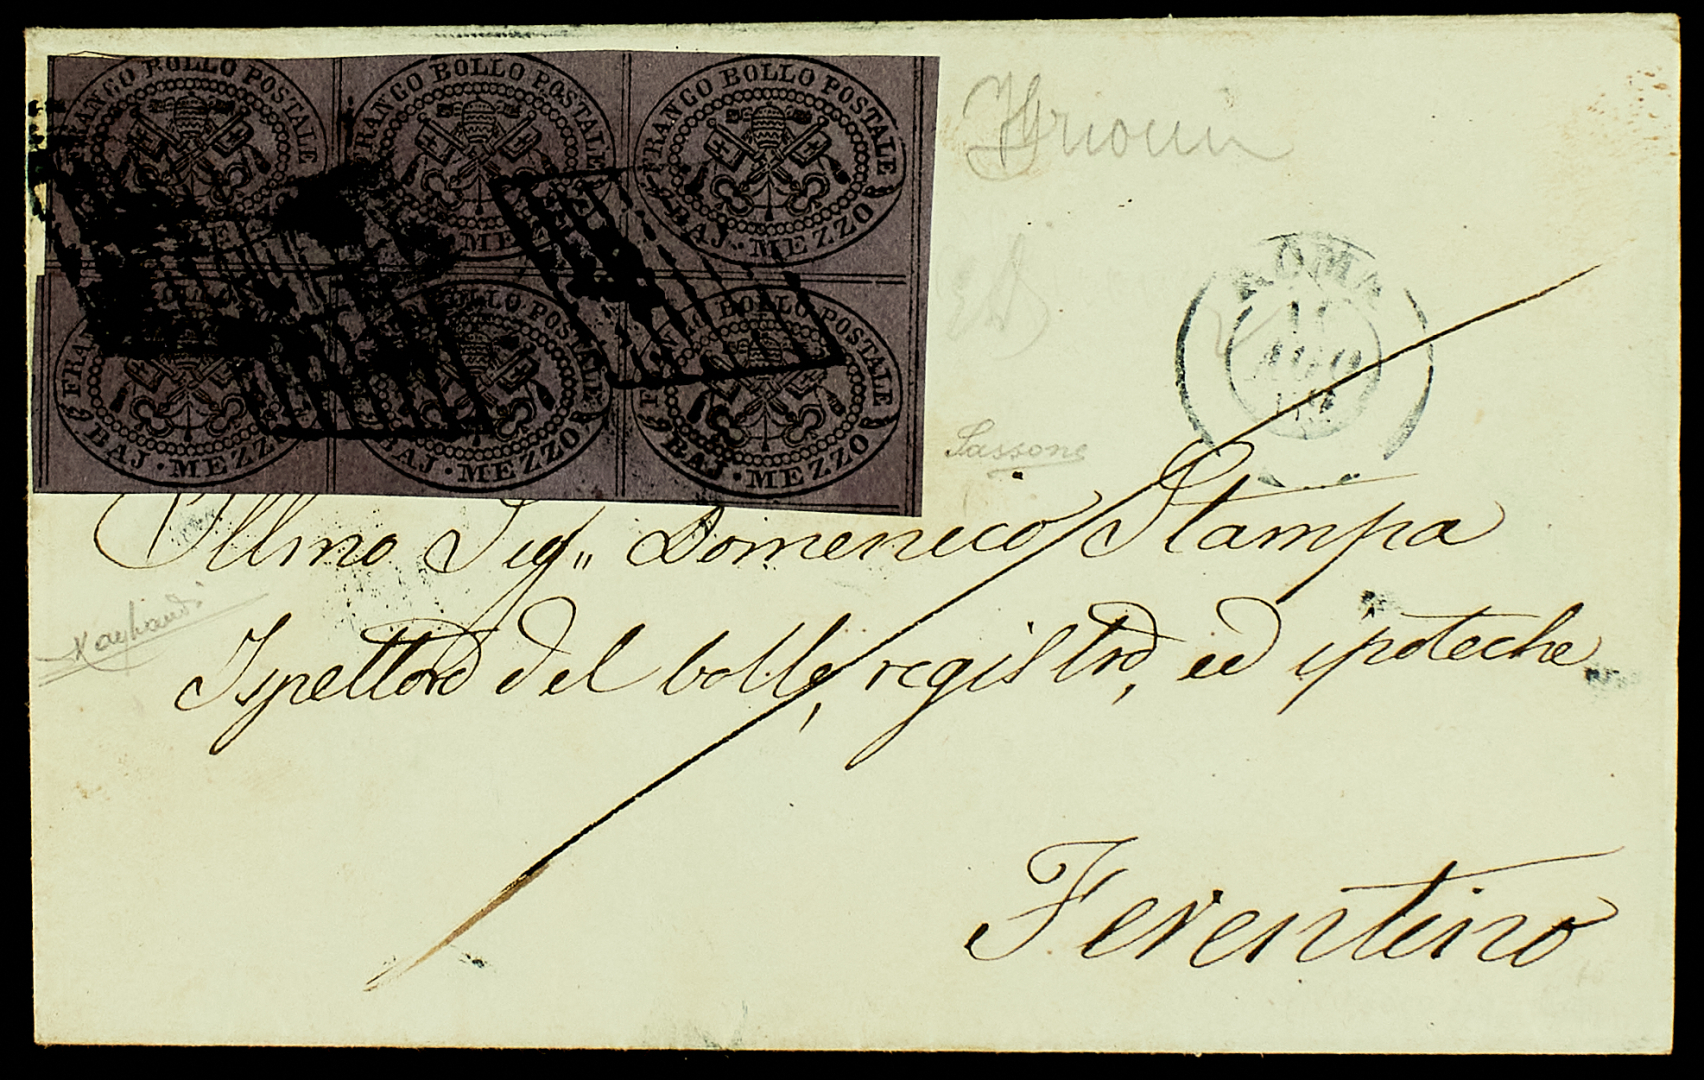 FRANCO BOLLO POSTALE
BAJ · MEZZO
FRANCO BOLLO POSTALE
BAJ · MEZZO
FRANCO BOLLO POSTALE
BAJ · MEZZO
FRANCO BOLLO POSTALE
BAJ · MEZZO
FRANCO BOLLO POSTALE
BAJ · MEZZO
ROMA
AGO
Sassone
Illmo Sig,, Domenico Stampa
Ispettore del bollo, registro, ed ipoteche
Ferentino